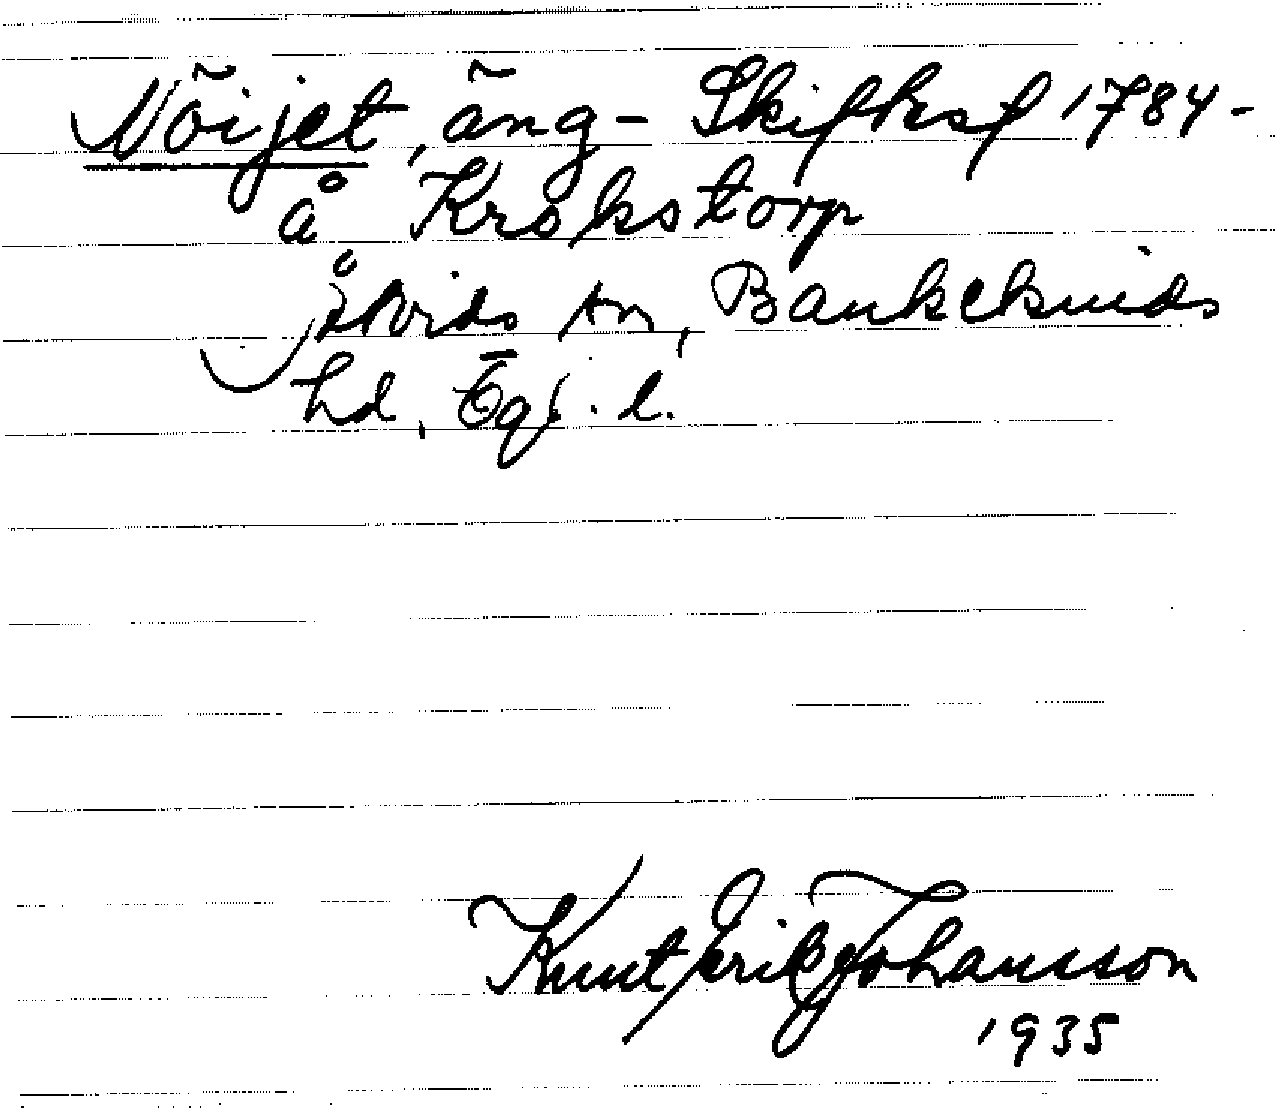 Nöijet, äng - Skifteshf 1784 -
å Krokstorp
Åtvids sn, Bankekinds
hd, Ögl. l.
Knut Erik Johansson
1935